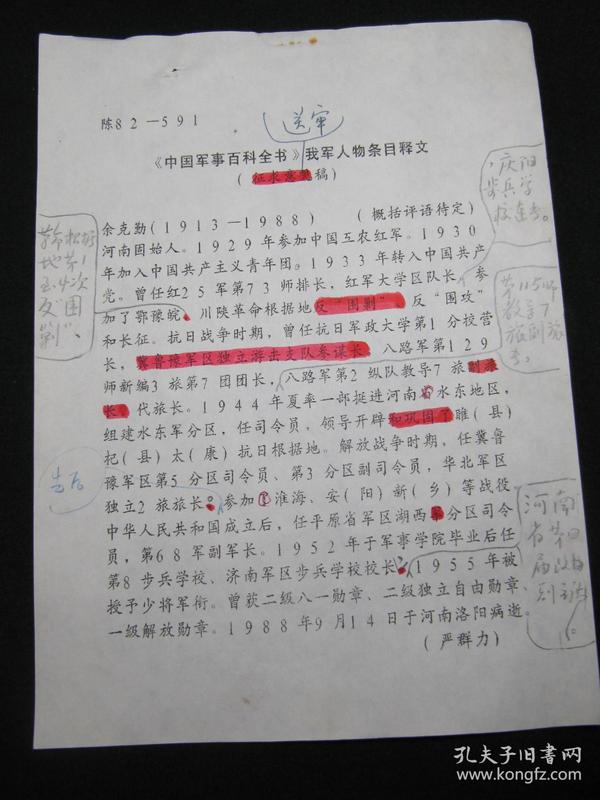 陈82—591
送审
《中国军事百科全书》我军人物条目释文
(征求意见稿)
余克勤(1913—1988) (概括评语待定)
河南固始人。1929年参加中国工农红军。1930
年加入中国共产主义青年团。1933年转入中国共产
党。曾任红25军第73师排长,红军大学区队长,参
加了鄂豫皖、川陕革命根据地反“围剿”、反“围攻”
和长征。抗日战争时期,曾任抗日军政大学第1分校营
长,冀鲁豫军区独立游击支队参谋长、八路军第129
师新编3旅第7团团长,八路军第2纵队教导7旅副旅
长、代旅长。1944年夏率一部挺进河南省水东地区,
组建水东军分区,任司令员,领导开辟和巩固了睢(县)
杞(县)太(康)抗日根据地。解放战争时期,任冀鲁
豫军区第5分区司令员、第3分区副司令员,华北军区
独立2旅旅长。参加了淮海、安(阳)新(乡)等战役
中华人民共和国成立后,任平原省军区湖西军分区司令
员,第68军副军长。1952年于军事学院毕业后任
第8步兵学校、济南军区步兵学校校长。1955年被
授予少将军衔。曾获二级八一勋章、二级独立自由勋章、
一级解放勋章。1988年9月14日于河南洛阳病逝。
(严群力)
庆阳
步兵学
校
第115师
教导7
旅副旅
长
根
地第1
至4次
反“围
剿”、
河南
省第四
届政协
副主席
孔夫子旧书网
www.kongfz.com